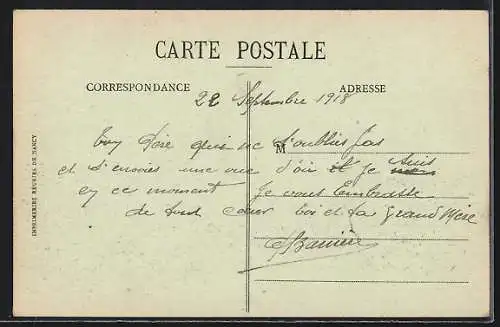 CARTE POSTALE
CORRESPONDANCE
ADRESSE
22 Septembre 1918
Ton Père qui ne t'oublies pas
M
et t'envoies une vue d'où il je suis
en ce moment Je vous Embrasse
de tout coeur toi et ta Grand Mère
IMPRIMERIES RÉUNIES DE NANCY